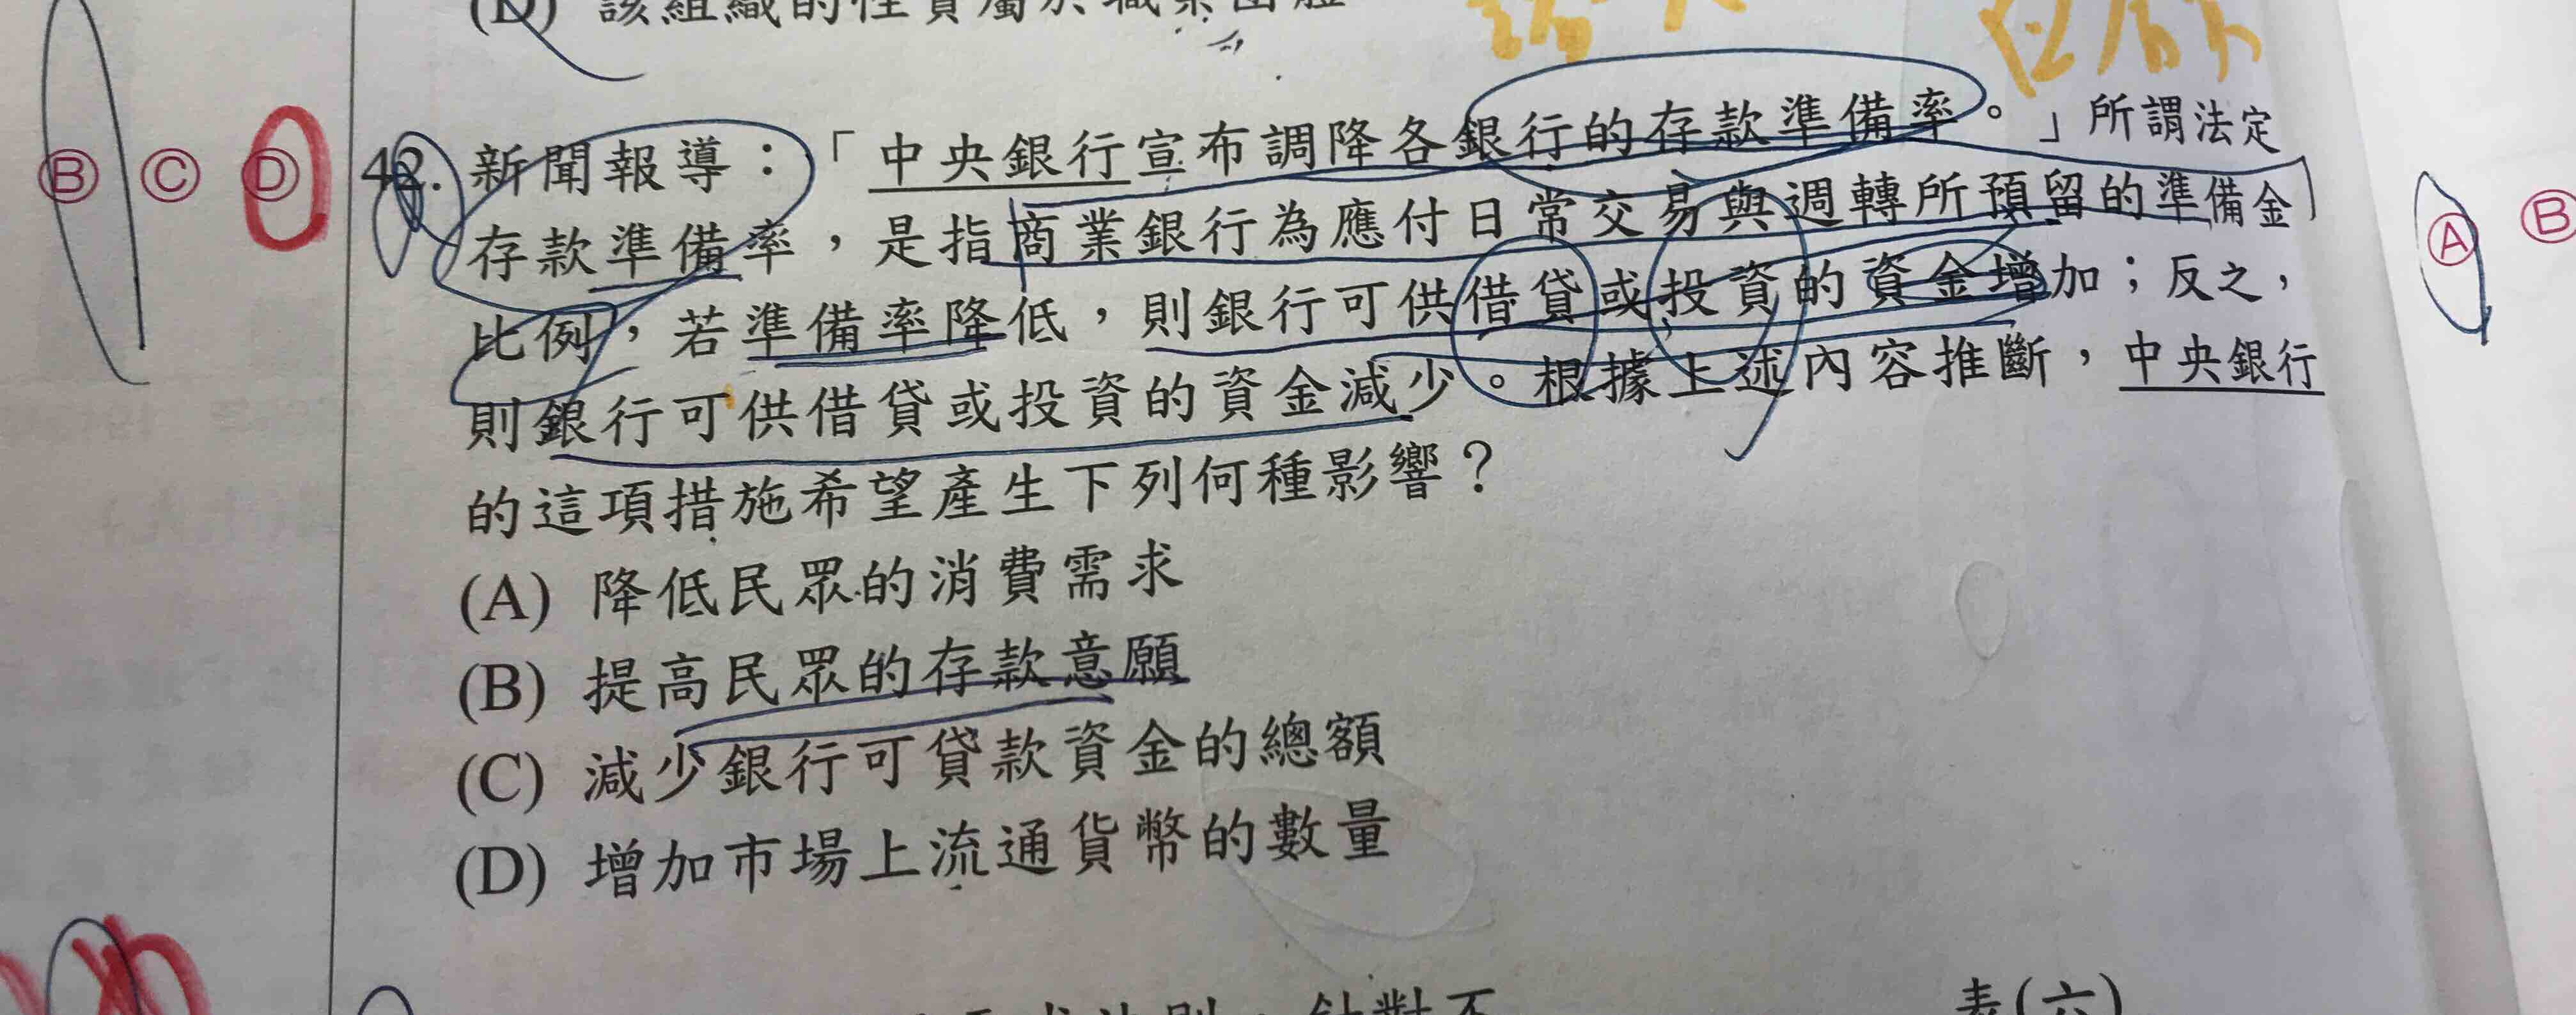 (D) 該組織的性質屬於職業團體
Ⓑ Ⓒ Ⓓ 42. 新聞報導：「中央銀行宣布調降各銀行的存款準備率。」所謂法定
存款準備率，是指商業銀行為應付日常交易與週轉所預留的準備金
比例，若準備率降低，則銀行可供借貸或投資的資金增加；反之，
則銀行可供借貸或投資的資金減少。根據上述內容推斷，中央銀行
的這項措施希望產生下列何種影響？
(A) 降低民眾的消費需求
(B) 提高民眾的存款意願
(C) 減少銀行可貸款資金的總額
(D) 增加市場上流通貨幣的數量
Ⓐ Ⓑ
表(六)